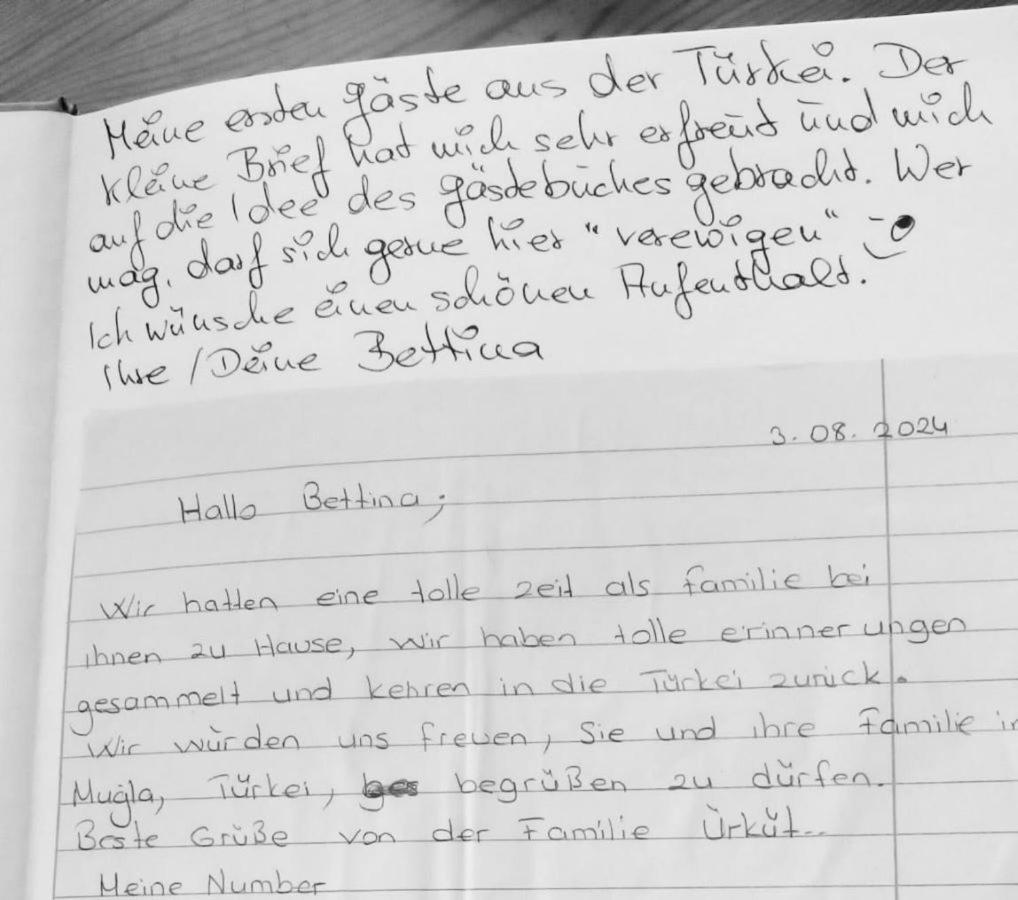 Meine ersten gäste aus der Türkei. Der
kleine Brief hat mich sehr erfreut und mich
auf die Idee des gästebuches gebracht. Wer
mag, darf sich gerne hier "verewigen"
Ich wünsche einen schönen Aufenthalt.
Ihre / Deine Bettina
3. 08. 2024
Hallo Bettina;
Wir hatten eine tolle zeit als familie bei
ihnen zu Hause, wir haben tolle erinnerungen
gesammelt und kehren in die Türkei zurück.
Wir würden uns freuen, Sie und ihre familie in
Muğla, Türkei, begrüßen zu dürfen.
Beste Grüße von der Familie Ürküt..
Meine Number